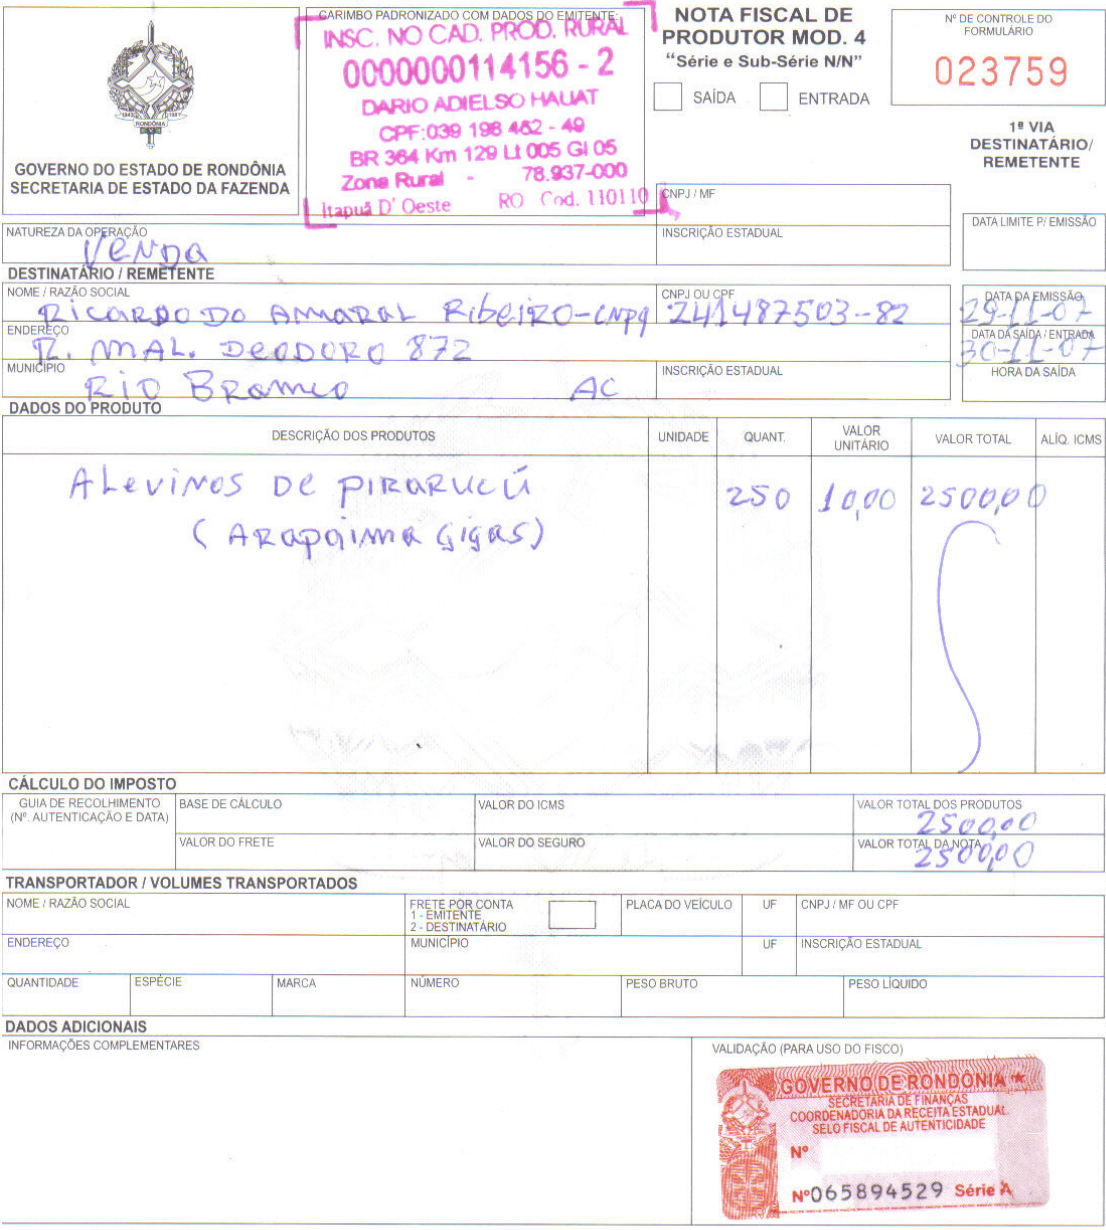 GOVERNO DO ESTADO DE RONDÔNIA
SECRETARIA DE ESTADO DA FAZENDA
CARIMBO PADRONIZADO COM DADOS DO EMITENTE:
INSC. NO CAD. PROD. RURAL
0000000114156 - 2
DARIO ADIELSO HAUAT
CPF:039 198 462 - 49
BR 364 Km 129 Lt 005 Gl 05
Zona Rural - 78.937-000
Itapuã D' Oeste RO Cod. 110110
NOTA FISCAL DE
PRODUTOR MOD. 4
"Série e Sub-Série N/N"
SAÍDA ENTRADA
Nº DE CONTROLE DO
FORMULÁRIO
023759
1ª VIA
DESTINATÁRIO/
REMETENTE
CNPJ / MF
NATUREZA DA OPERAÇÃO
VENDA
INSCRIÇÃO ESTADUAL
DATA LIMITE P/ EMISSÃO
DESTINATÁRIO / REMETENTE
NOME / RAZÃO SOCIAL
RICARDO DO AMARAL RibeiRO-CNPq
CNPJ OU CPF
241487503--82
DATA DA EMISSÃO
29-11-07
ENDEREÇO
R. MAL. DEODORO 872
DATA DA SAÍDA / ENTRADA
30-11-07
MUNICÍPIO
RIO BRANCO AC
INSCRIÇÃO ESTADUAL
HORA DA SAÍDA
DADOS DO PRODUTO
DESCRIÇÃO DOS PRODUTOS UNIDADE QUANT. VALOR UNITÁRIO VALOR TOTAL ALÍQ. ICMS
ALeviNos De PIRARUCÚ 250 10,00 2500,00
(ARAPAIMA GIGAS)
CÁLCULO DO IMPOSTO
GUIA DE RECOLHIMENTO
(Nº. AUTENTICAÇÃO E DATA)
BASE DE CÁLCULO
VALOR DO ICMS
VALOR TOTAL DOS PRODUTOS
2500,00
VALOR DO FRETE
VALOR DO SEGURO
VALOR TOTAL DA NOTA
2500,00
TRANSPORTADOR / VOLUMES TRANSPORTADOS
NOME / RAZÃO SOCIAL
FRETE POR CONTA
1 - EMITENTE
2 - DESTINATÁRIO
PLACA DO VEÍCULO UF CNPJ / MF OU CPF
ENDEREÇO MUNICÍPIO UF INSCRIÇÃO ESTADUAL
QUANTIDADE ESPÉCIE MARCA NÚMERO PESO BRUTO PESO LÍQUIDO
DADOS ADICIONAIS
INFORMAÇÕES COMPLEMENTARES
VALIDAÇÃO (PARA USO DO FISCO)
GOVERNO DE RONDÔNIA
SECRETARIA DE FINANÇAS
COORDENADORIA DA RECEITA ESTADUAL
SELO FISCAL DE AUTENTICIDADE
Nº
Nº065894529 Série A